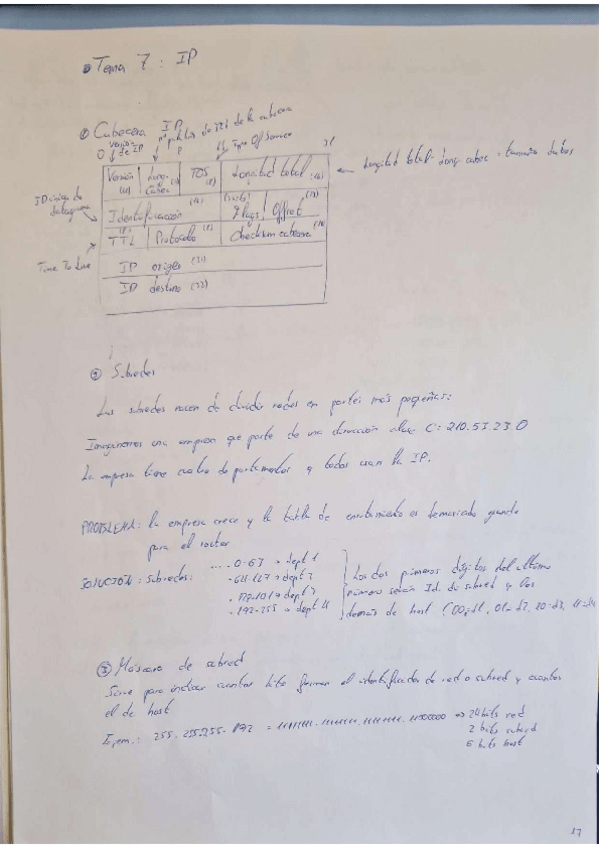 Tema 7: IP
① Cabecera IP
nº palabras de 32b de la cabecera
0 Versión de IP
Type Of Service
31
Versión (4) Long. cabec (4) TOS (8) Longitud total (16)
← Longitud total = long. cabec + tamaño datos
ID único de datagrama
Identificación (16) Flags Offset (13)
TTL (8) Protocolo (8) Checksum cabecera (16)
Time To Live
IP origen (32)
IP destino (32)
② Subredes
Las subredes nacen de dividir redes en partes más pequeñas:
Imaginemos una empresa que parte de una dirección clase C: 210.53.23.0
La empresa tiene cuatro departamentos y todos usan la IP.
PROBLEMA: la empresa crece y la tabla de enrutamiento es demasiado grande
para el router
SOLUCIÓN: Subredes: .... 0-63 → dept 1
. 64-127 → dept 2
. → dept 3
. 192-255 → dept 4
Los dos primeros dígitos del último
número serán Id. de subred y los
demás de host (00=d1, 01=d2, 10=d3, 11=d4
③ Máscara de subred
Sirve para indicar cuantos bits forman el identificador de red o subred y cuantos
el de host
Ejem.: 255.255.255.192 = 11111111.11111111.11111111.11000000 => 24 bits red
2 bits subred
6 bits host
17